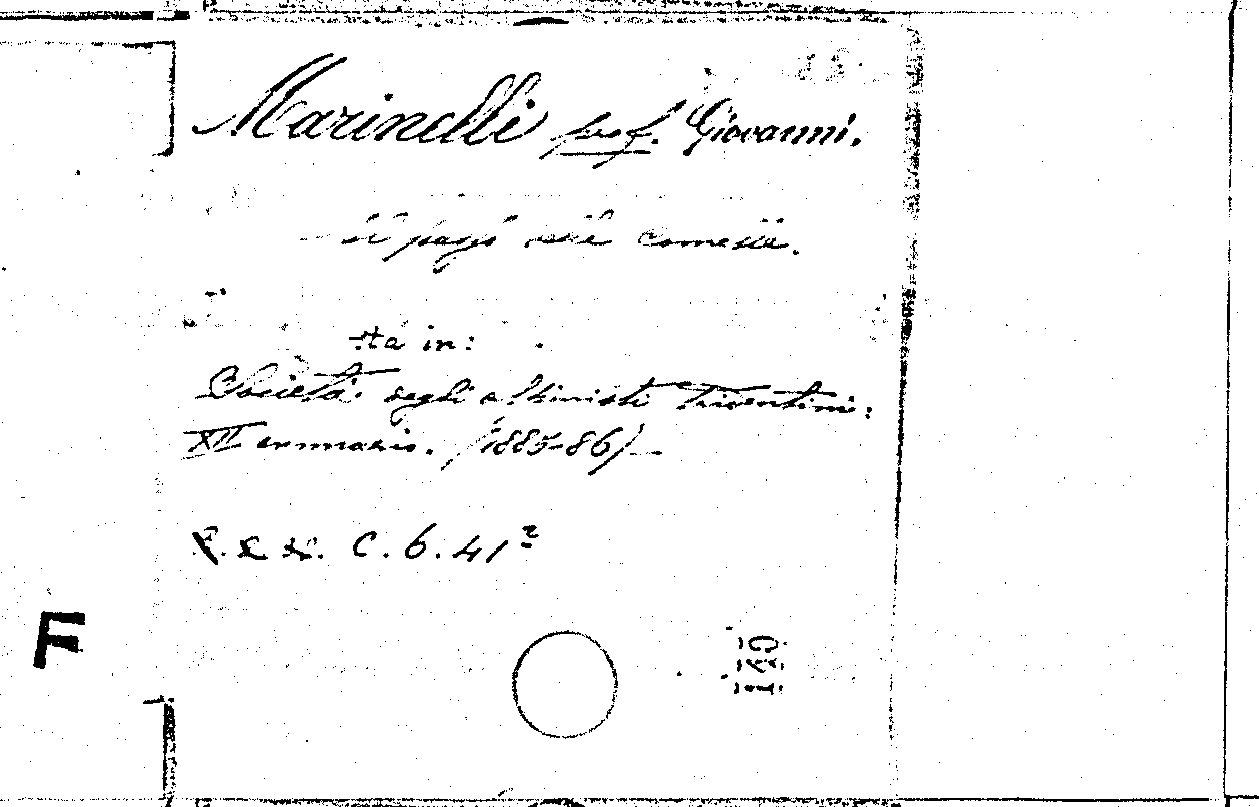 Marinelli prof. Giovanni.
Il paese delle comelie.
sta in:
Società degli alpinisti Tridentini:
XII annuario. (1885-86)
C. 6. 41²
F